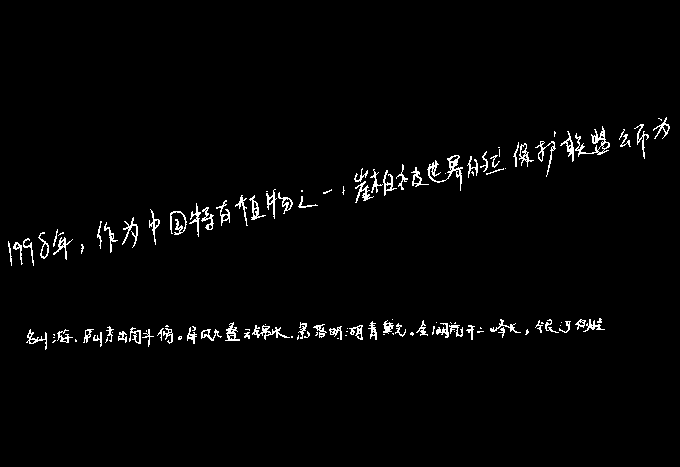 1998年，作为中国特有植物之一，崖柏被世界自然保护联盟公布为
名山游.庐山秀出南斗傍。屏风九叠云锦张.影落明湖青黛光。金阙前开二峰长，银河倒挂